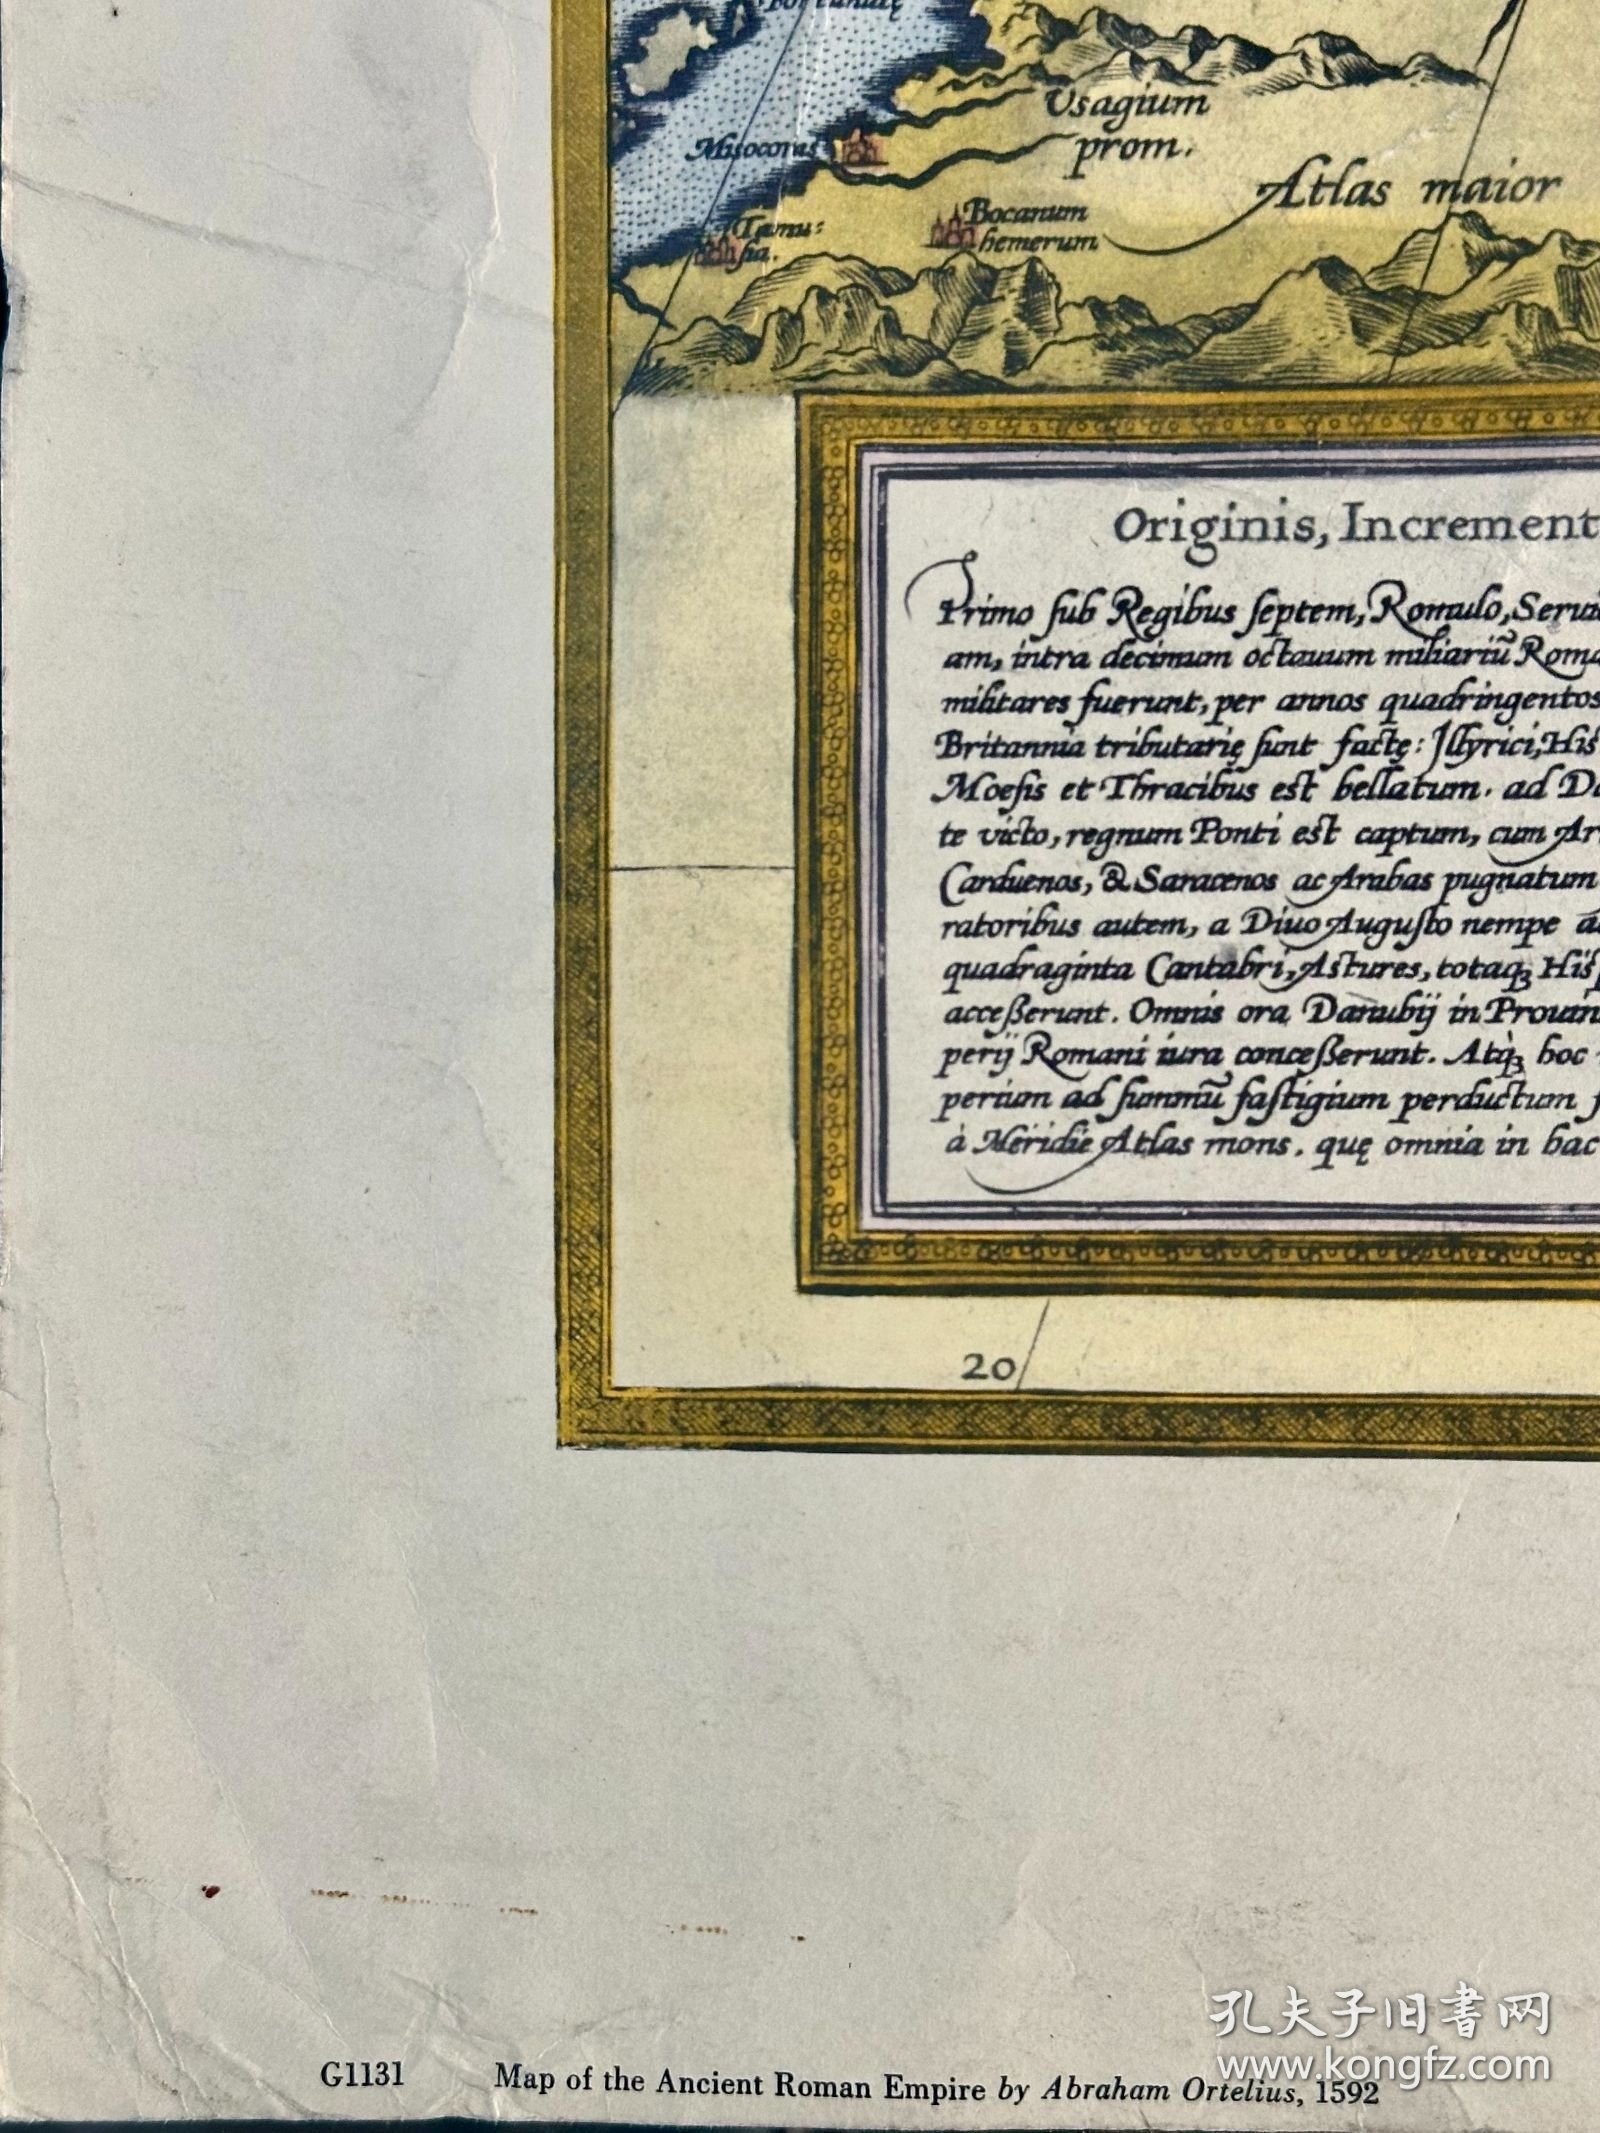 Usagium
prom.
Misocoras
Atlas maior
Tamu:
sia.
Bocanum
hemerum
Originis, Increment
Primo ſub Regibus ſeptem, Romulo, Serui
am, intra decimum octauum miliariū Roma
militares fuerunt, per annos quadringentos
Britannia tributarię ſunt factę: Illyrici, His
Moeſis et Thracibus est bellatum. ad Da
te victo, regnum Ponti est captum, cum Ar
Carduenos, & Saracenos ac Arabas pugnatum
ratoribus autem, a Diuo Auguſto nempe
quadraginta Cantabri, Astures, totaqꝫ Hisp
acceßerunt. Omnis ora Danubij in Prouin
perij Romani iura conceßerunt. Atqꝫ hoc
perium ad ſummū faſtigium perductum
à Meridie Atlas mons. quę omnia in hac
20
孔夫子旧书网
www.kongfz.com
G1131 Map of the Ancient Roman Empire by Abraham Ortelius, 1592